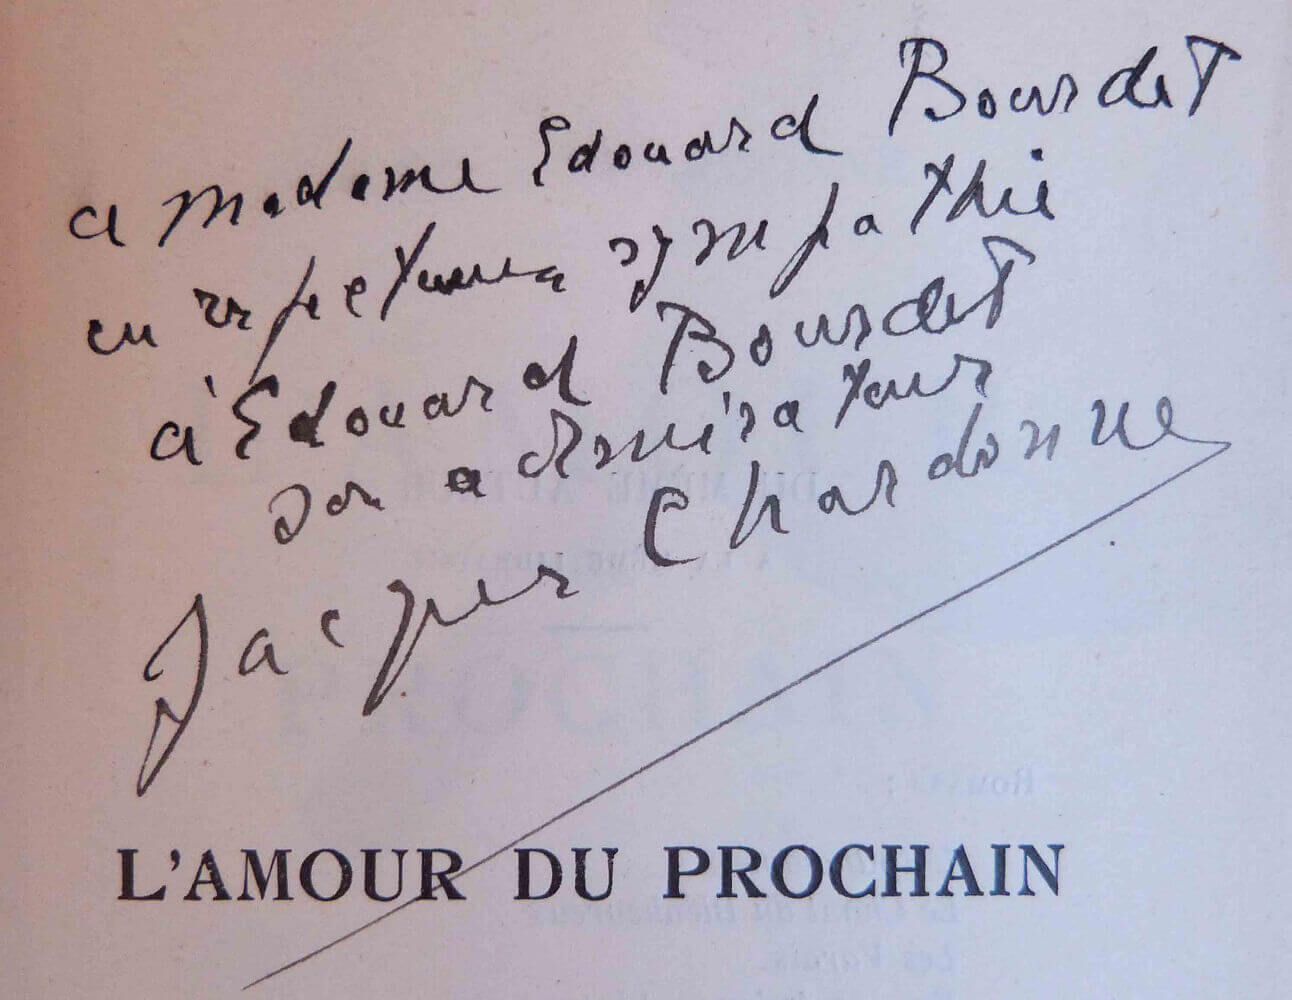 a Madame Edouard Bourdet
en respectueuse sympathie
à Edouard Bourdet
son admirateur
Jacques Chardonne
L'AMOUR DU PROCHAIN